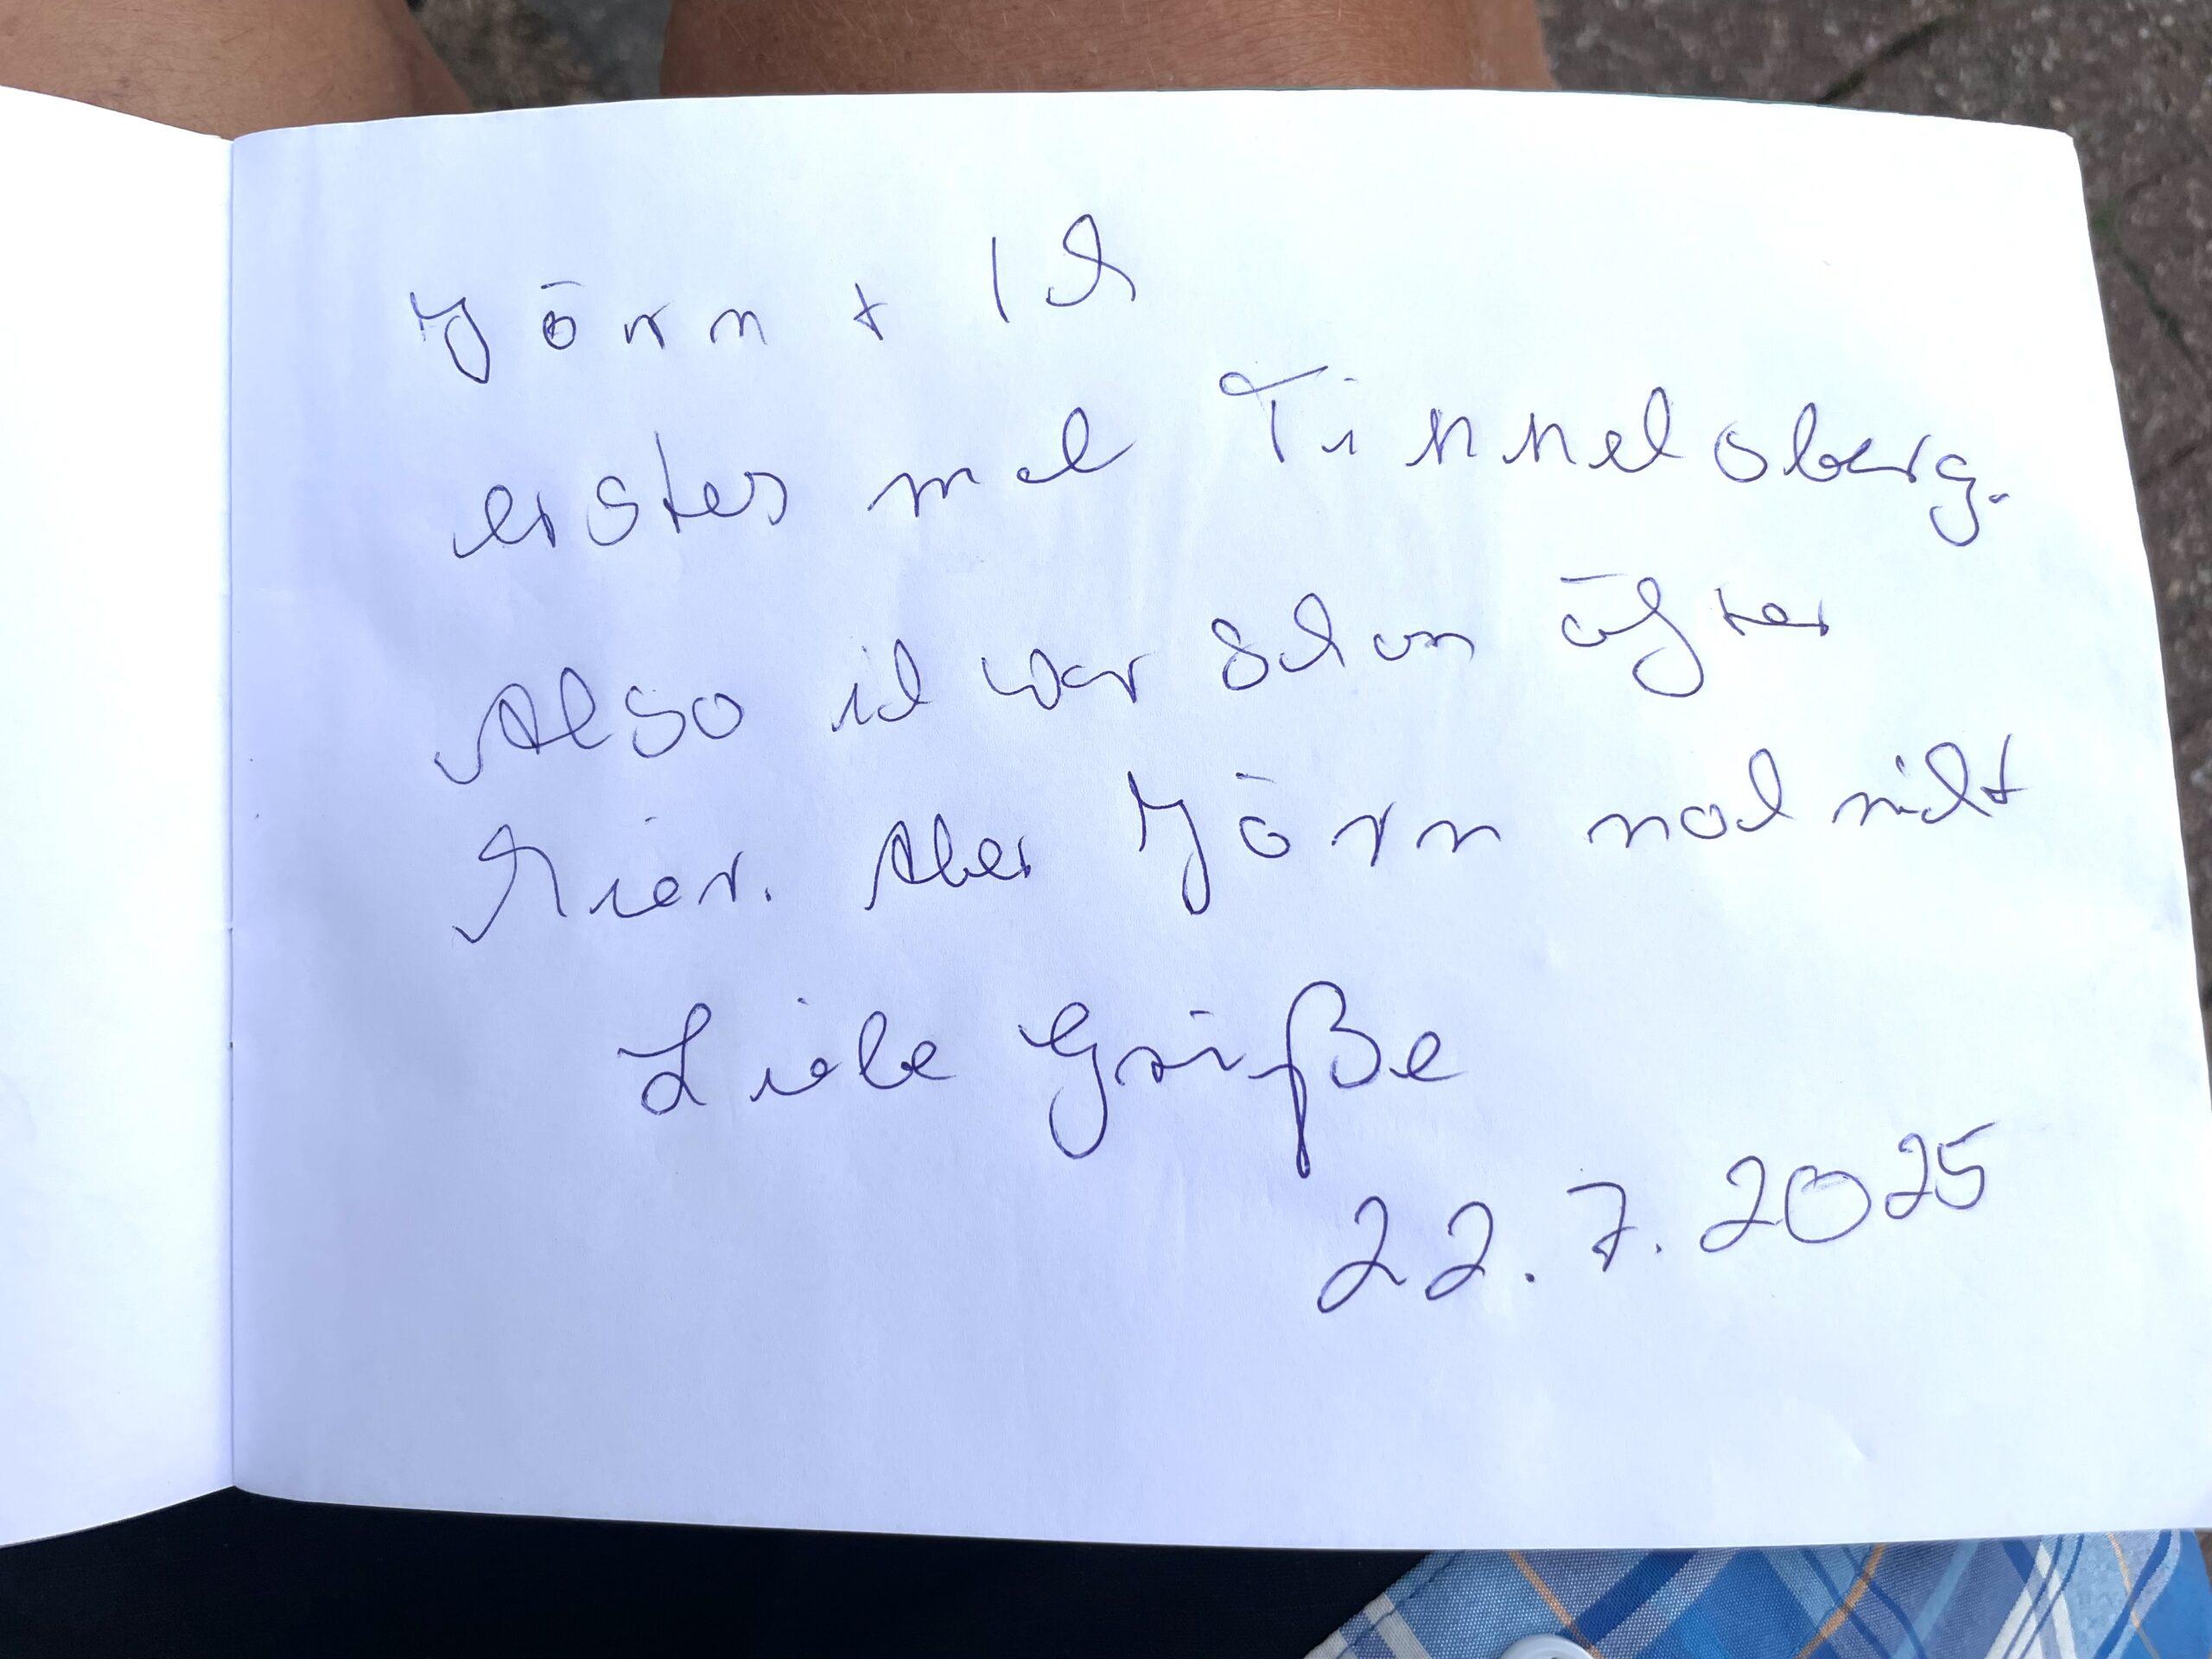 Jörn + Ich
erstes mal Timmelsberg.
Also ich war schon öfter
hier. Aber Jörn noch nicht
Liebe Grüße
22.7.2025